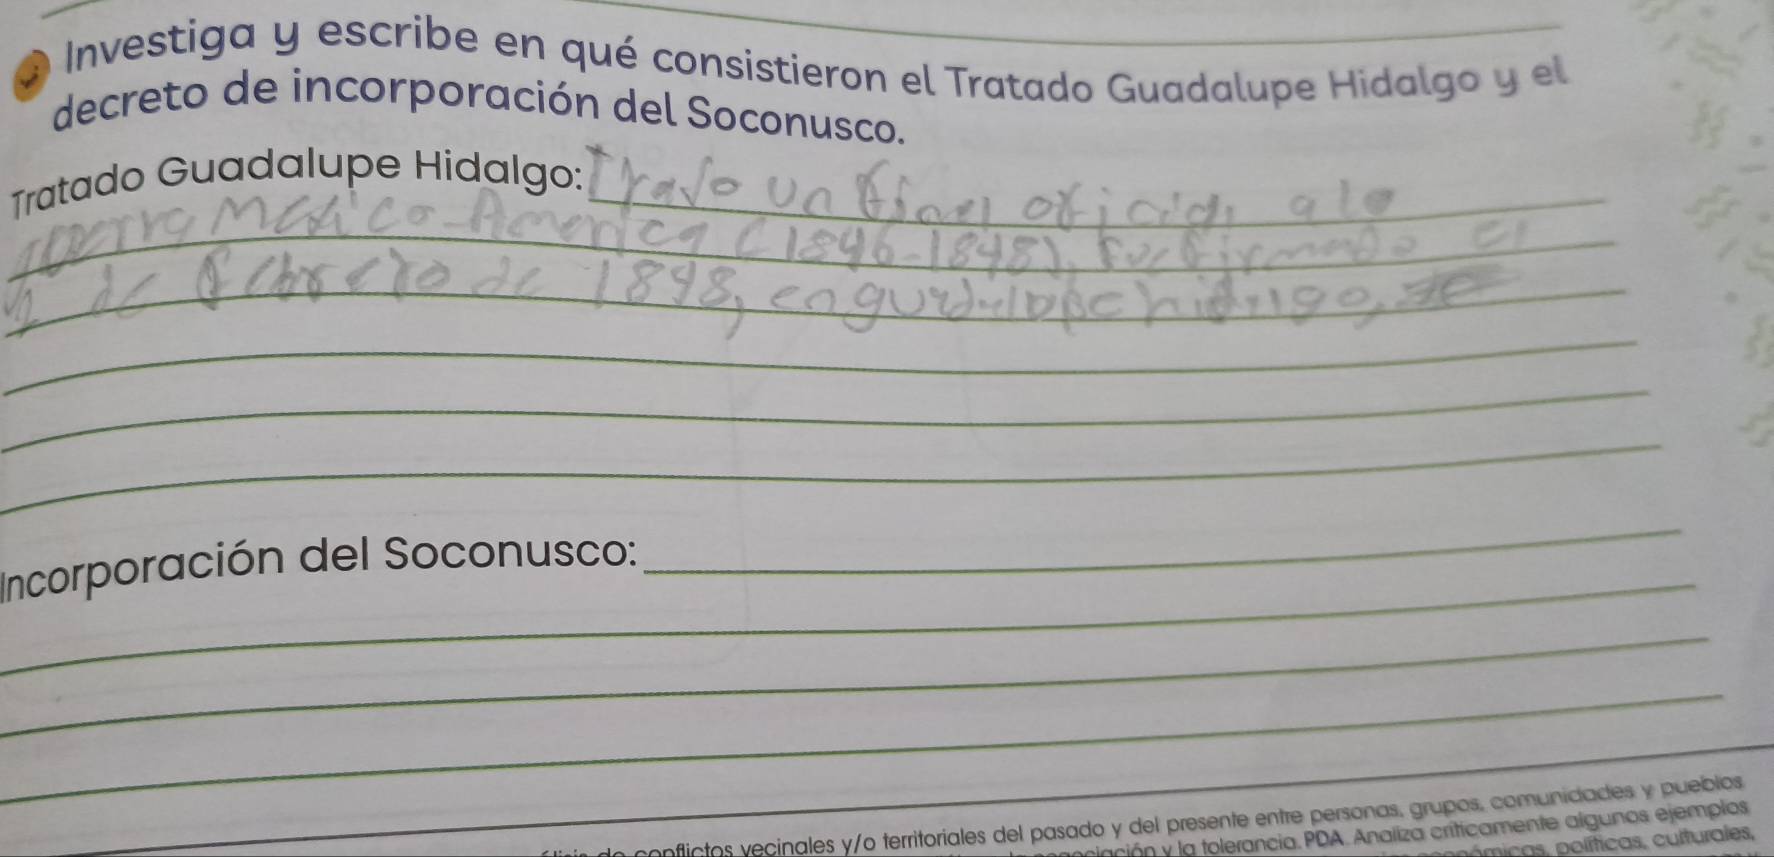 Investiga y escribe en qué consistieron el Tratado Guadalupe Hidalgo y el
decreto de incorporación del Soconusco.
Tratado Guadalupe Hidalgo: Travo un final oficial a la
guerra Mexico-America (1846-1848), fue firmado el
2 de febrero de 1848, en
Incorporación del Soconusco:
conflictos vecinales y/o territoriales del pasado y del presente entre personas, grupos, comunidades y pueblos
y la tolerancia. PDA. Analiza críticamente algunos ejemplos
políticas, culturales,